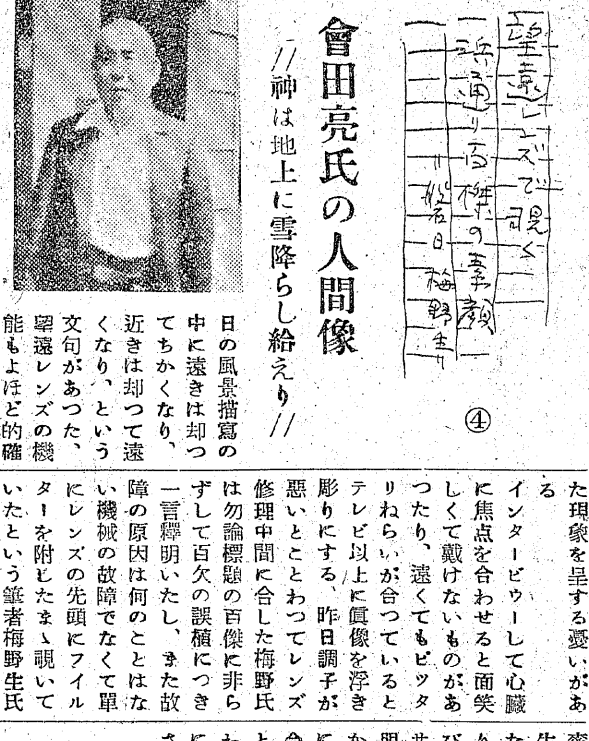 望遠レンズで覗く
浜通り百傑の素顔
〃般若日 梅野生〃
④
會田亮氏の人間像
〃神は地上に雪降らし給えり〃
日の風景描寫の
中に遠きは却つ
てちかくなり、
近きは却つて遠
くなり、という
文句があつた、
望遠レンズの機
能もよほど的確
た現象を呈する憂いがあ
る
インタービウーして心臓
に焦点を合わせると面笑
しくて戴けないものがあ
つたり、遠くてもピッタ
リねらいが合つていると
テレビ以上に眞像を浮き
彫りにする、昨日調子が
悪いとことわつてレンズ
修理中間に合した梅野氏
は勿論標題の百傑に非ら
ずして百欠の誤植につき
一言釋明いたし、また故
障の原因は何のことはな
い機械の故障でなくて單
にレンズの先頭にフイル
ターを附したまゝ覗いて
いたという筆者梅野生氏